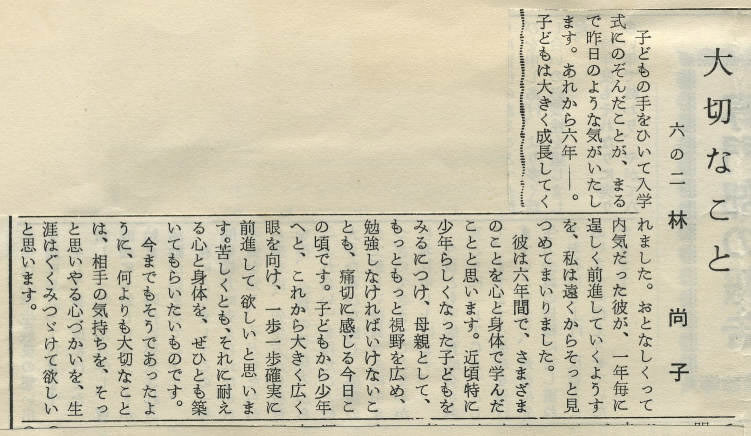 大切なこと
六の二　林　尚子
子どもの手をひいて入学
式にのぞんだことが、まる
で昨日のような気がいたし
ます。あれから六年――。
子どもは大きく成長してく
れました。おとなしくって
内気だった彼が、一年毎に
逞しく前進していくようす
を、私は遠くからそっと見
つめてまいりました。
彼は六年間で、さまざま
のことを心と身体で学んだ
ことと思います。近頃特に
少年らしくなった子どもを
みるにつけ、母親として、
もっともっと視野を広め、
勉強しなければいけないこ
とも、痛切に感じる今日こ
の頃です。子どもから少年
へと、これから大きく広く
眼を向け、一歩一歩確実に
前進して欲しいと思いま
す。苦しくとも、それに耐え
る心と身体を、ぜひとも築
いてもらいたいものです。
今までもそうであったよ
うに、何よりも大切なこと
は、相手の気持ちを、そっ
と思いやる心づかいを、生
涯はぐくみつゞけて欲しい
と思います。